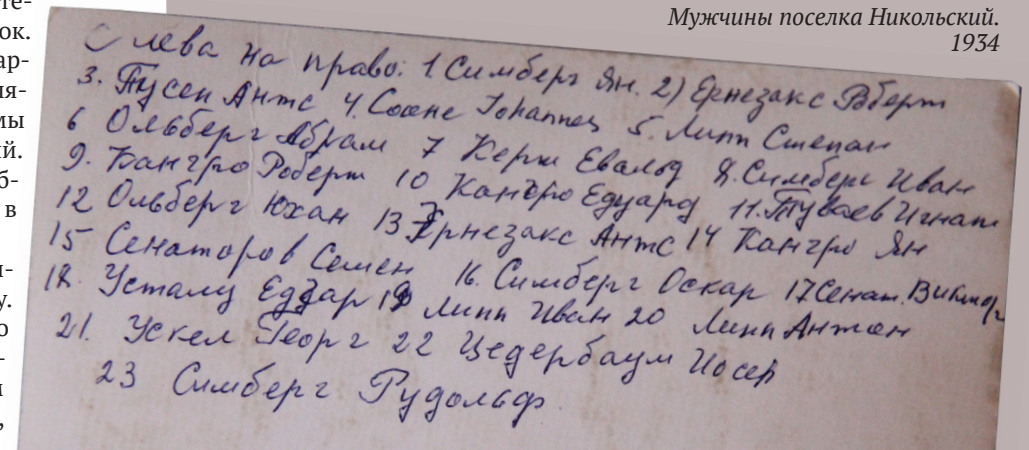 те-
ок.
ар-
ия-
мы
ий.
об-
в
и-
у.
о
-
и
,
Мужчины поселка Никольский.
1934
Слева на право: 1. Симберг Ян. 2) Ернезакс Роберт
3. Тусен Антс 4. Соане Iohannes 5. Липп Степан
6 Ольберг Абрам 7 Керш Евальд 8. Симберг Иван
9. Кангро Роберт 10 Кангро Едуард 11. Туваев Игнат
12 Ольберг Юхан 13 Ернезакс Антс 14 Кангро Ян
15 Сенаторов Семен 16. Симберг Оскар 17 Сенат. Виктор
18. Усталу Едгар 19 Липп Иван 20 Липп Антон
21. Ускел Георг 22 Цедербаум Иосеп
23 Симберг Рудольф.